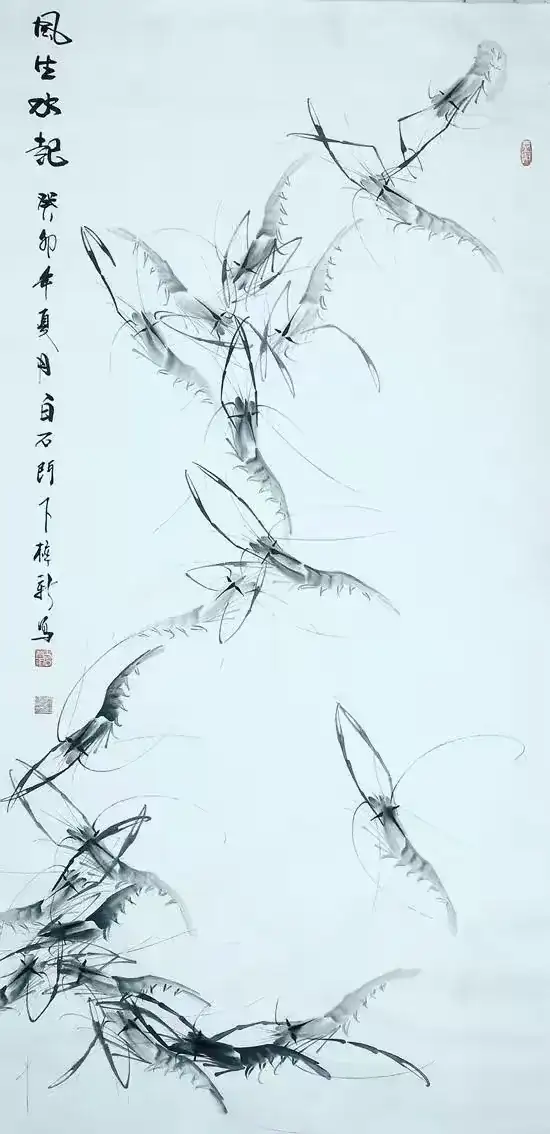 風生水起
癸卯年夏月白石門下梓新寫